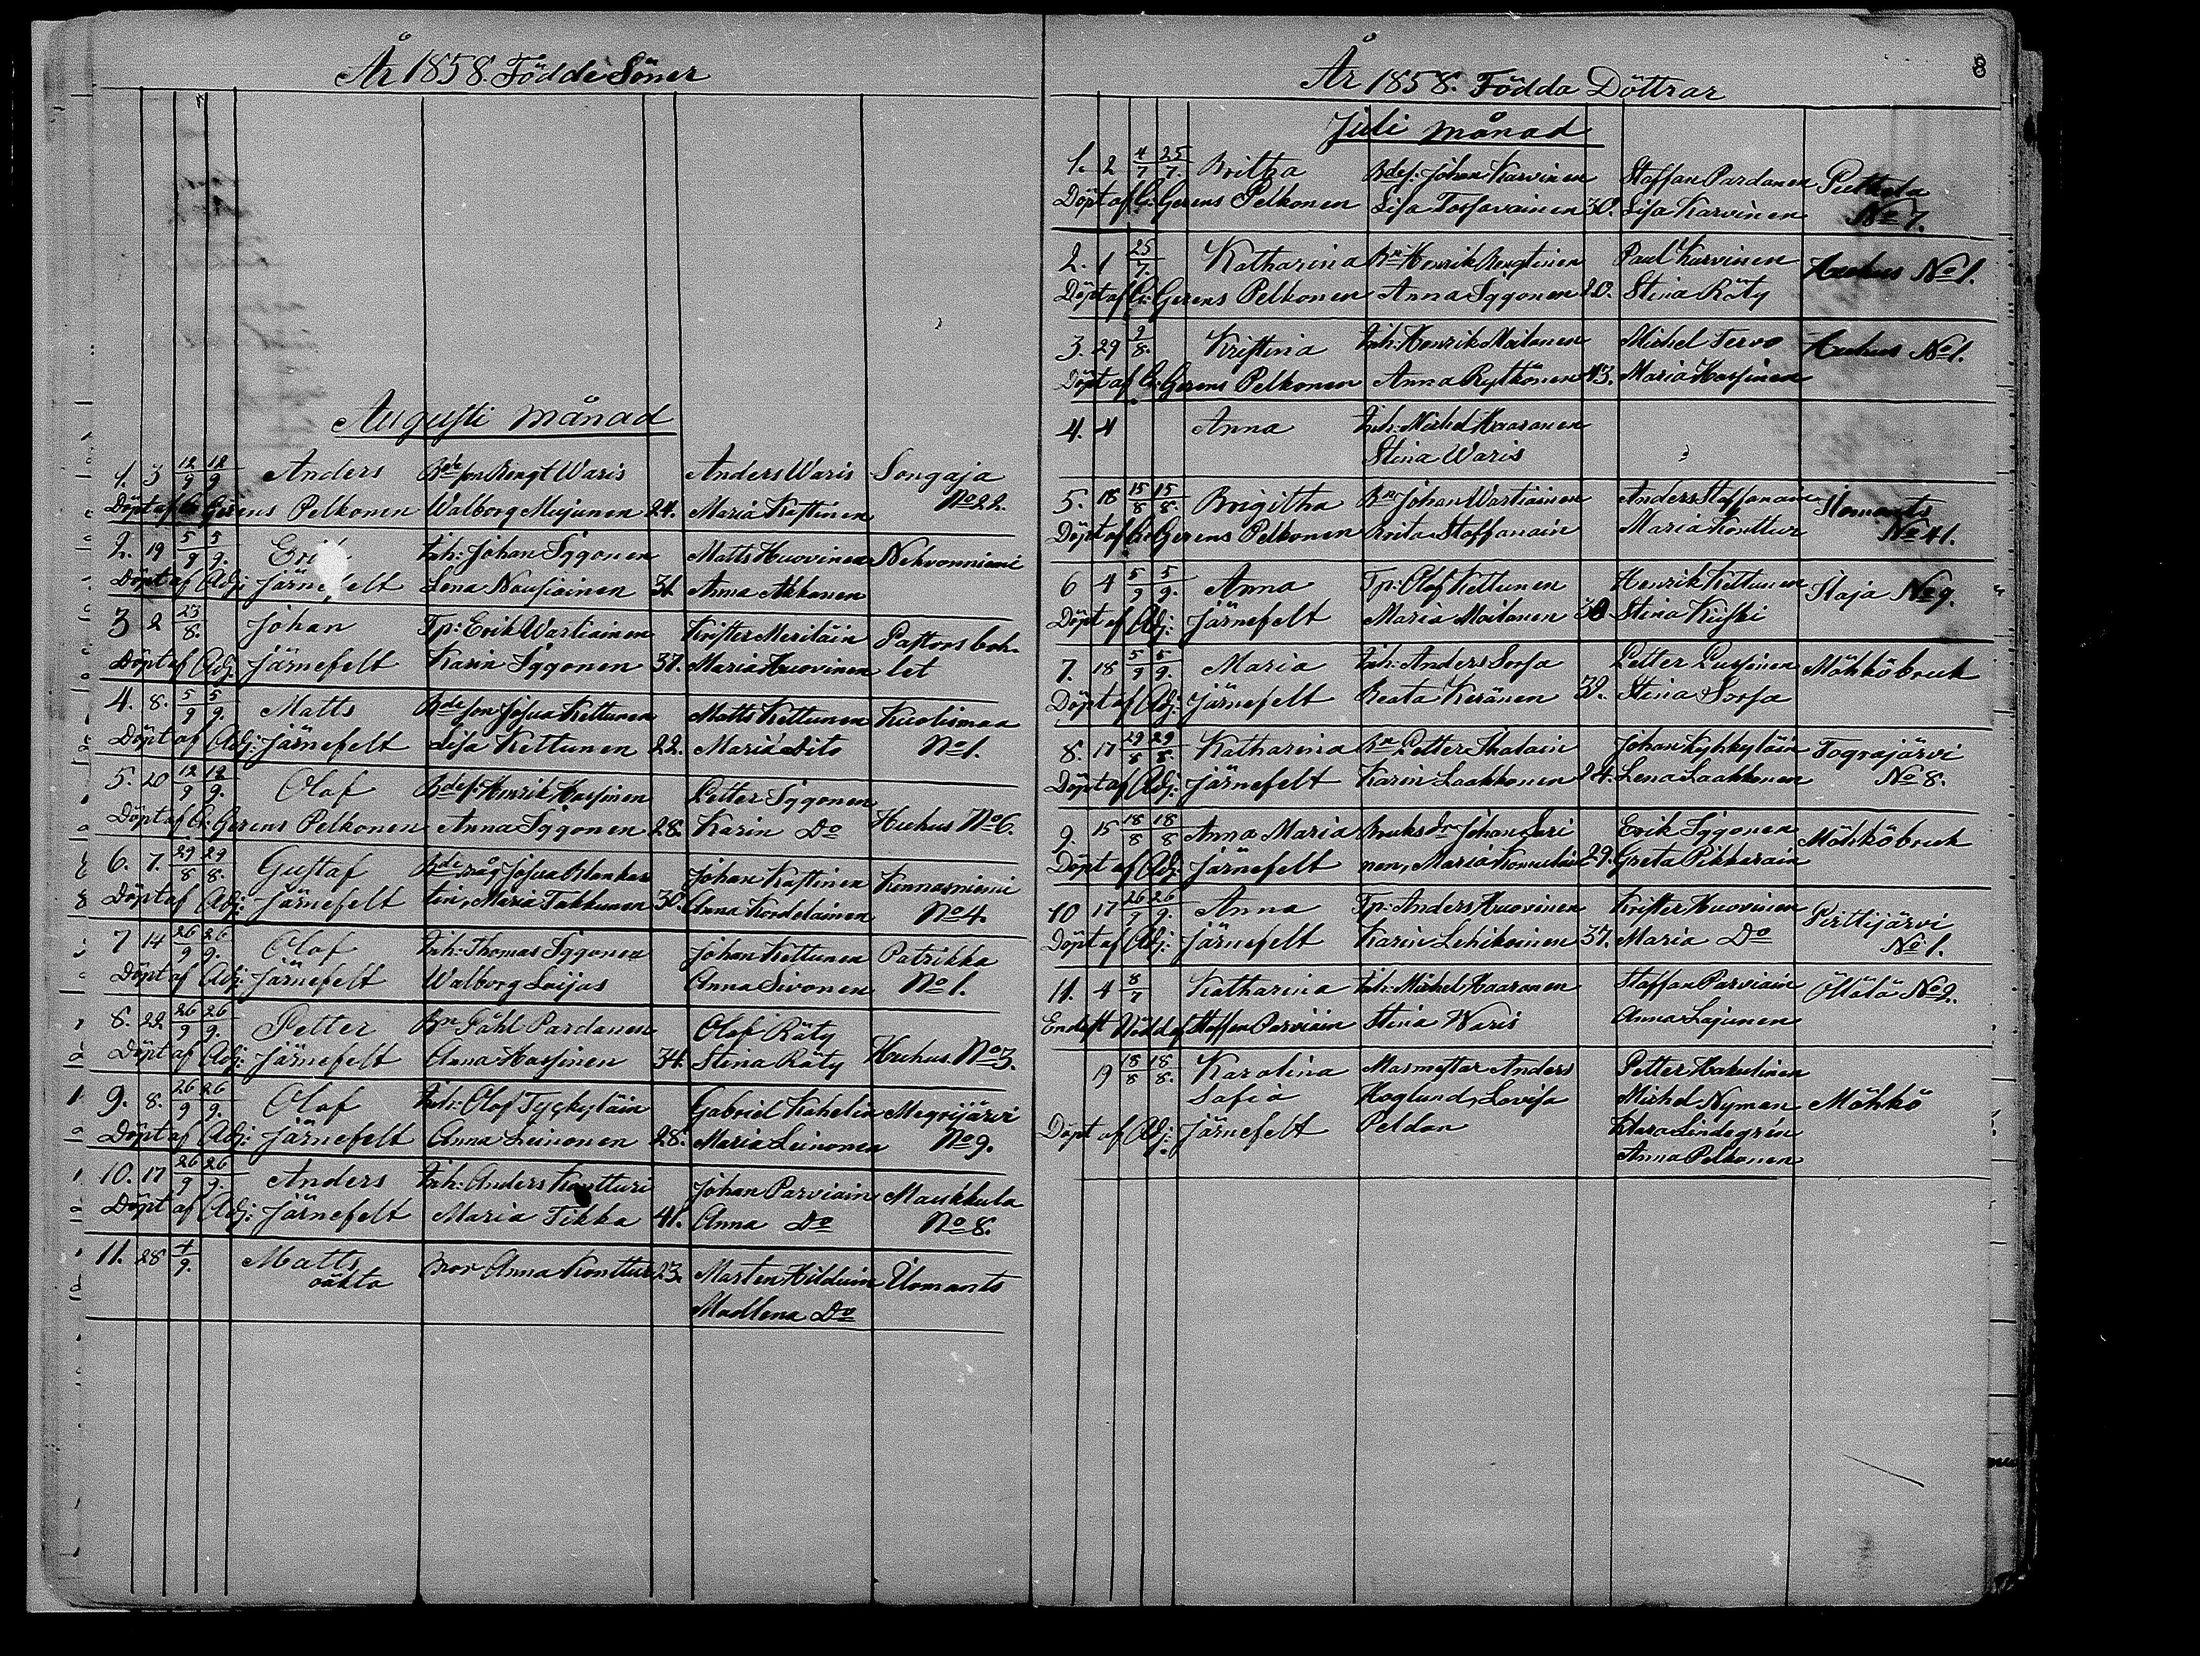 År 1858. Födde Söner
Augusti månad
1. 3 12/9 12/9 Anders Bde son Bengt Waris Anders Waris Songaja
Döpt af C: Gerens Pelkonen Walborg Mujunen 24. Maria Kastinen No 22.
2. 19 5/9 5/9. Inh: Johan Iggonen Matts Huovinen Nehvonniemi
Döpt af Adj: Järnefelt Lena Nousiainen 31. Anna Akkanen
3 2 23/8. Johan Tp: Erik Wartiainen Krister Meriläin Pastors bohlet
Döpt af Adj. Järnefelt Karin Iggonen 37. Maria Huovinen
4. 8. 5/9 5/9. Matts Bde son Josua Kettunen Matts Kettunen Kuolismaa
Döpt af Adj: Järnefelt Lisa Kettunen 22. Maria dito No 1.
5. 20 12/9 12/9. Olof Bdes. Henrik Hassinen Petter Iggonen Huhus No 6.
Döpt af C: Gerens Pelkonen Anna Iggonen 28. Karin Do
6. 7. 29/8 29/8. Gustaf Bde måg Josua Blanket Johan Kastinen Kinnasniemi
Döpt af Adj: Järnefelt tin, Maria Takkunen 30. Anna Kordelainen No 4.
7 14 26/9 26/9. Olof Inh: Thomas Iggonen Johan Kettunen Patrikka
Döpt af Adj: Järnefelt Walborg Loijas Anna Sivonen No 1.
8. 22 26/9 26/9. Petter Bn Påhl Pardanen Olof Räty
Döpt af Adj: Järnefelt Anna Hassinen 34. Stina Räty Huhus No 3.
9. 8. 26/9 26/9. Olof Inh: Olof Tyykyläin Gabriel Kahelin Megrijärvi
Döpt af Adj: Järnefelt Anna Leinonen 28. Maria Leinonen No 9.
10. 17 26/9 26/9. Anders Inh: Anders Kontturi Johan Parviain Maukkula
Döpt af Adj: Järnefelt Maria Tikka 41. Anna Do No 8.
11. 28 4/9. Matts mor Anna Konttur 23. Marten Hilduin Ilomants
oäkta Madlena Do
8
År 1858. Födda Döttrar
Juli månad
1. 2 4/7 25/7. Britha Bdes. Johan Karvinen Staffan Pardanen
Döpt af C: Gerens Pelkonen Lisa Tossavainen 30. Lisa Karvinen No 7.
2. 1 25/7. Katharina Bn Henrik Bengtinen Paul Karvinen Huhus No 1.
Döpt af C: Gerens Pelkonen Anna Iggonen 20. Stina Räty
3. 29 9/8. Kristina Inh: Henrik Moilanen Michel Tervo Huhus No 1.
Döpt af C: Gerens Pelkonen Anna Rytkönen 43. Maria Hassinen
4. 4 Anna Inh: Michel Haaranen
Stina Waris
5. 18 15/8 15/8. Brigitha Bn Johan Wartiainen Anders Staffanain Ilomants
Döpt af C: Gerens Pelkonen Brita Staffanain Maria Konttur No 41.
6 4 5/9 5/9. Anna Tp: Olof Kettunen Henrik Kettunen Ilaja No 9.
Döpt af Adj: Järnefelt Maria Moilanen Stina Kuiski
7. 18 5/9 5/9. Maria Inh: Anders Sorsa Petter Pussinen Möhkö bruk
Döpt af Adj: Järnefelt Beata Keränen 39. Stina Sorsa
8. 17 29/8 29/8. Katharina Bn Petter Ihalain Johan Kyhkyläin Tograjärvi
Döpt af Adj: Järnefelt Karin Laakkonen 24. Lena Laakkonen No 8.
9. 15 18/8 18/8 Anna Maria Bruks dr Johan Sari Erik Iggonen Möhkö bruk
Döpt af Adj: Järnefelt nen, Maria 29. Greta Pikkarain
10 17 26/9 26/9. Anna Tp: Anders Huovinen Krister Huovinen Pirttijärvi
Döpt af Adj: Järnefelt Karin Lehikoinen 37. Maria Do No 1.
11. 4 8/7 Katharina Inh: Michel Haaranen Staffan Parviain Öllölä No 2.
Endast Nöddöpt Staffan Parviäin Stina Waris Anna Lajunen
19 18/8 18/8. Karolina Masmestar Anders Petter Hakulinen
Sofia Hoglund, Lovisa Michel Nyman Möhkö
Döpt af Adj: Järnefelt Peldan Klara Lindegrén
Anna Pelkonen